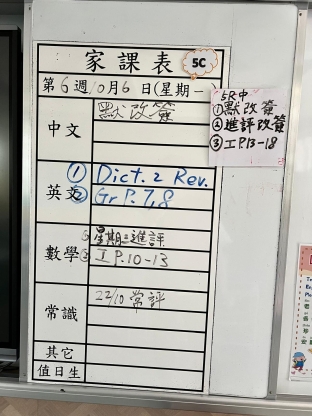 家課表 5C
第6週10月6日(星期一
中文 默改簽
英文 ① Dict. 2 Rev.
② Gr P. 7,8
數學 ① 星期三進評
② 工 P.10-13
常識 22/10 常評
其它
值日生
5R中
① 默改簽
② 進評改簽
③ 工 P.13-18